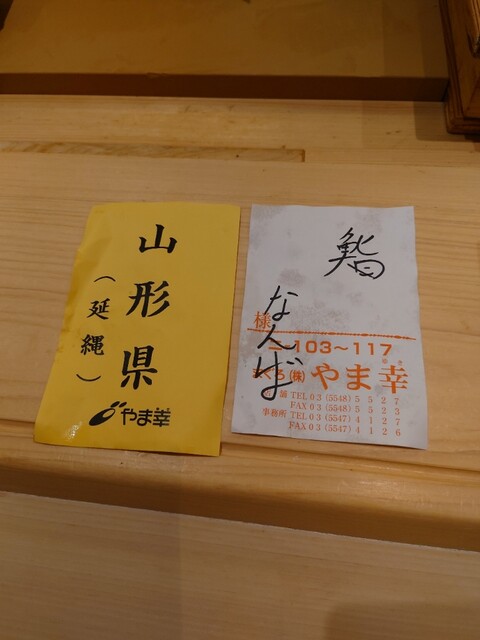 山形県
（延縄）
やま幸
鮨
なんば
様
103〜117
まぐろ（株）やま幸
TEL 03 (5548) 5527
FAX 03 (5548) 5523
事務所 TEL 03 (5547) 4127
FAX 03 (5547) 4126